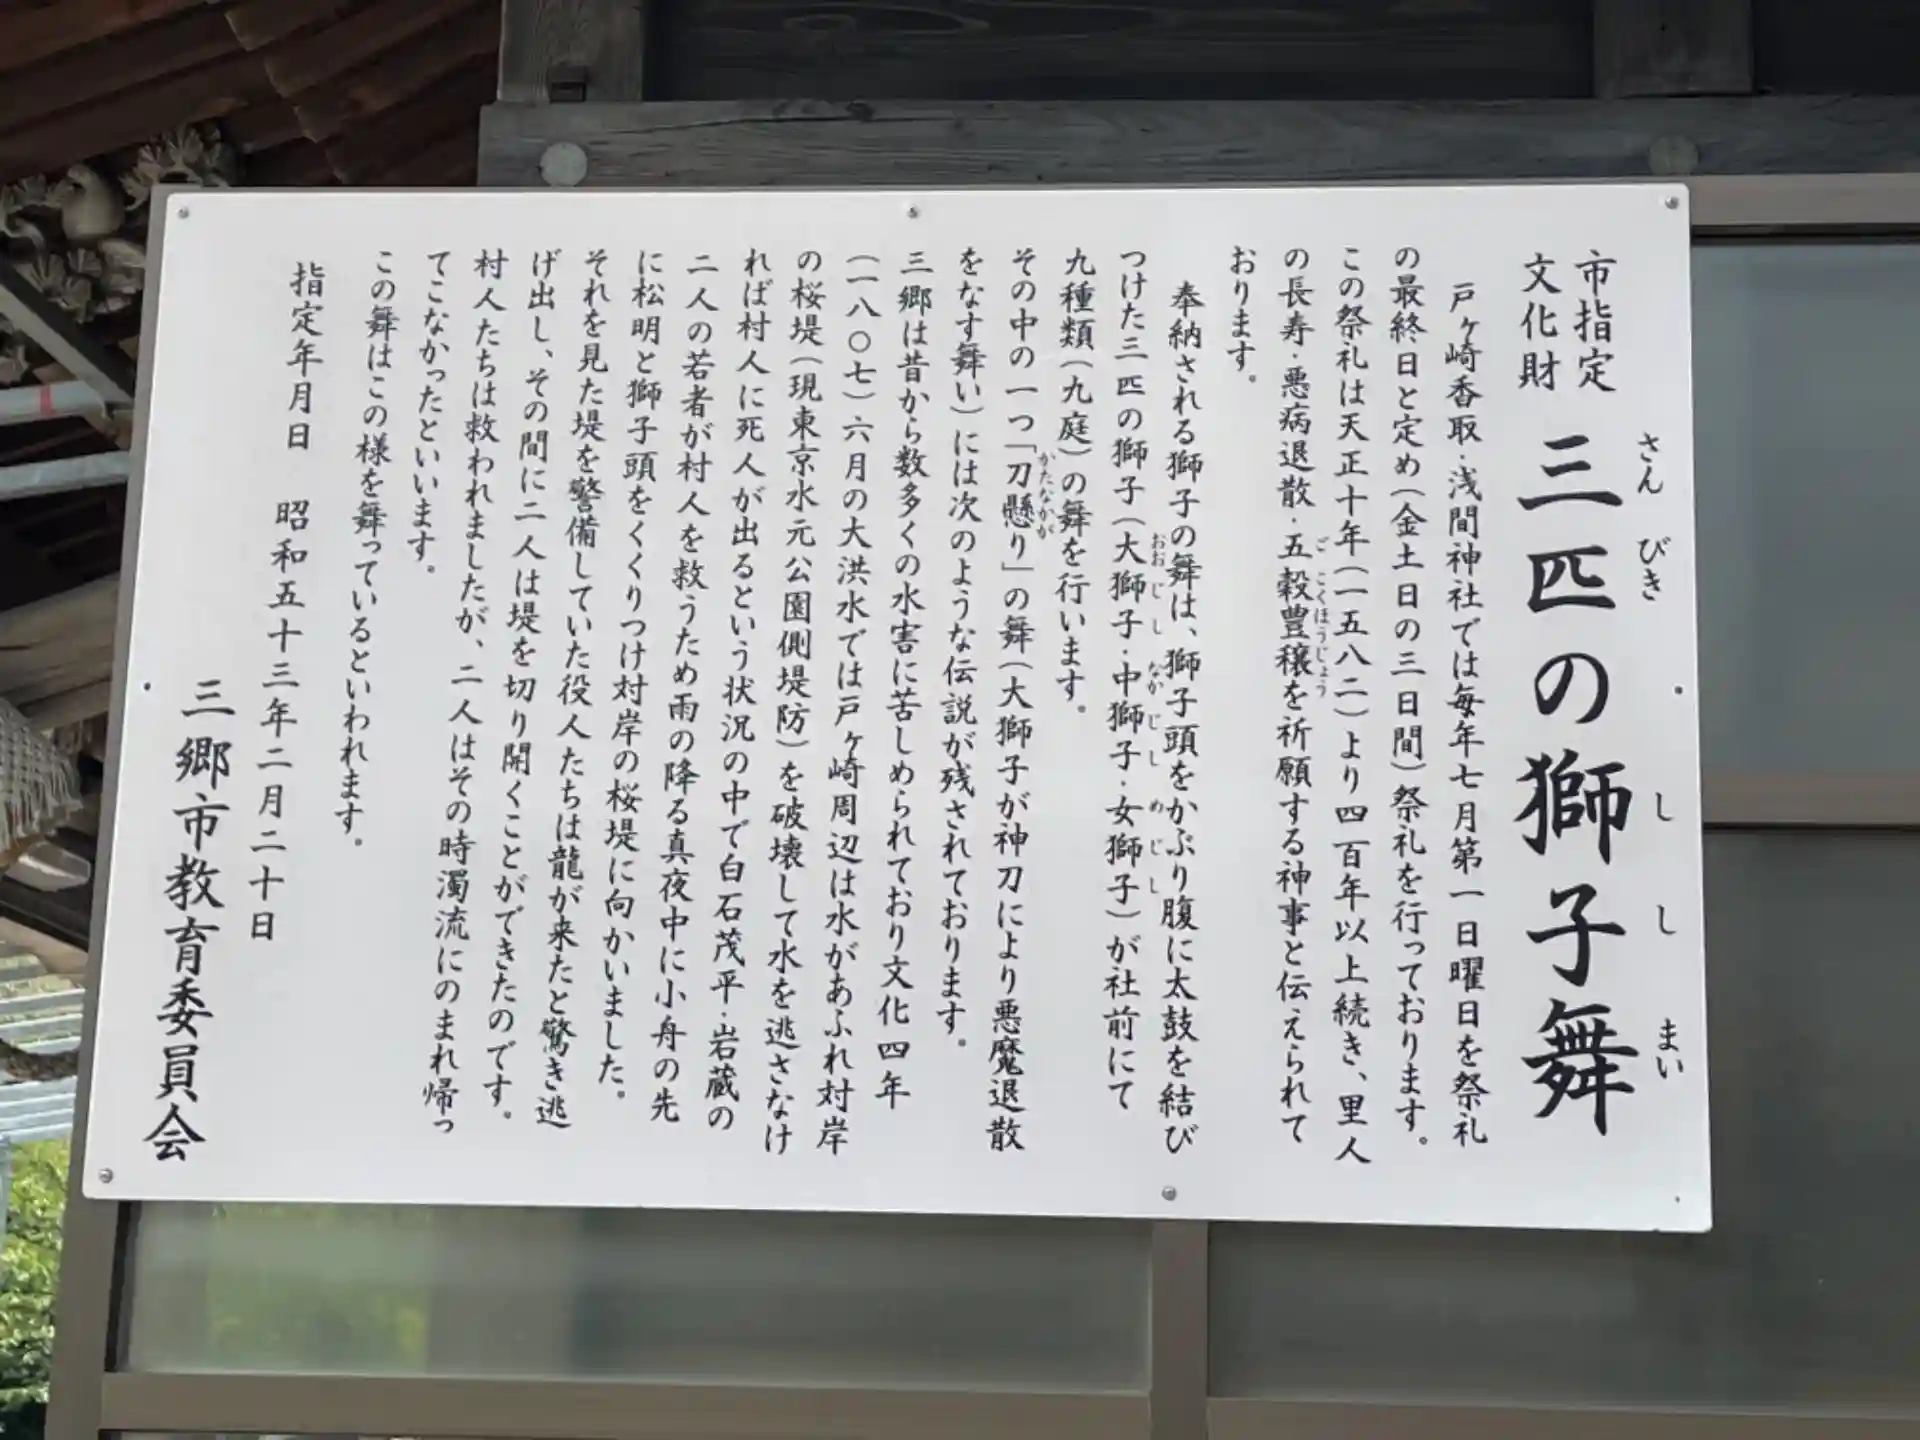 市指定
文化財
三匹の獅子舞
さんびきししまい
戸ヶ崎香取・浅間神社では毎年七月第一日曜日を祭礼
の最終日と定め(金土日の三日間)祭礼を行っております。
この祭礼は天正十年(一五八二)より四百年以上続き、里人
の長寿・悪病退散・五穀豊穣を祈願する神事と伝えられて
ごこくほうじょう
おります。
奉納される獅子の舞は、獅子頭をかぶり腹に太鼓を結び
つけた三匹の獅子(大獅子・中獅子・女獅子)が社前にて
おおじし なかじし めじし
九種類(九庭)の舞を行います。
その中の一つ「刀懸り」の舞(大獅子が神刀により悪魔退散
かたなかが
をなす舞い)には次のような伝説が残されております。
三郷は昔から数多くの水害に苦しめられており文化四年
(一八〇七)六月の大洪水では戸ヶ崎周辺は水があふれ対岸
の桜堤(現東京水元公園側堤防)を破壊して水を逃さなけ
れば村人に死人が出るという状況の中で白石茂平・岩蔵の
二人の若者が村人を救うため雨の降る真夜中に小舟の先
に松明と獅子頭をくくりつけ対岸の桜堤に向かいました。
それを見た堤を警備していた役人たちは龍が来たと驚き逃
げ出し、その間に二人は堤を切り開くことができたのです。
村人たちは救われましたが、二人はその時濁流にのまれ帰っ
てこなかったといいます。
この舞はこの様を舞っているといわれます。
指定年月日 昭和五十三年二月二十日
三郷市教育委員会